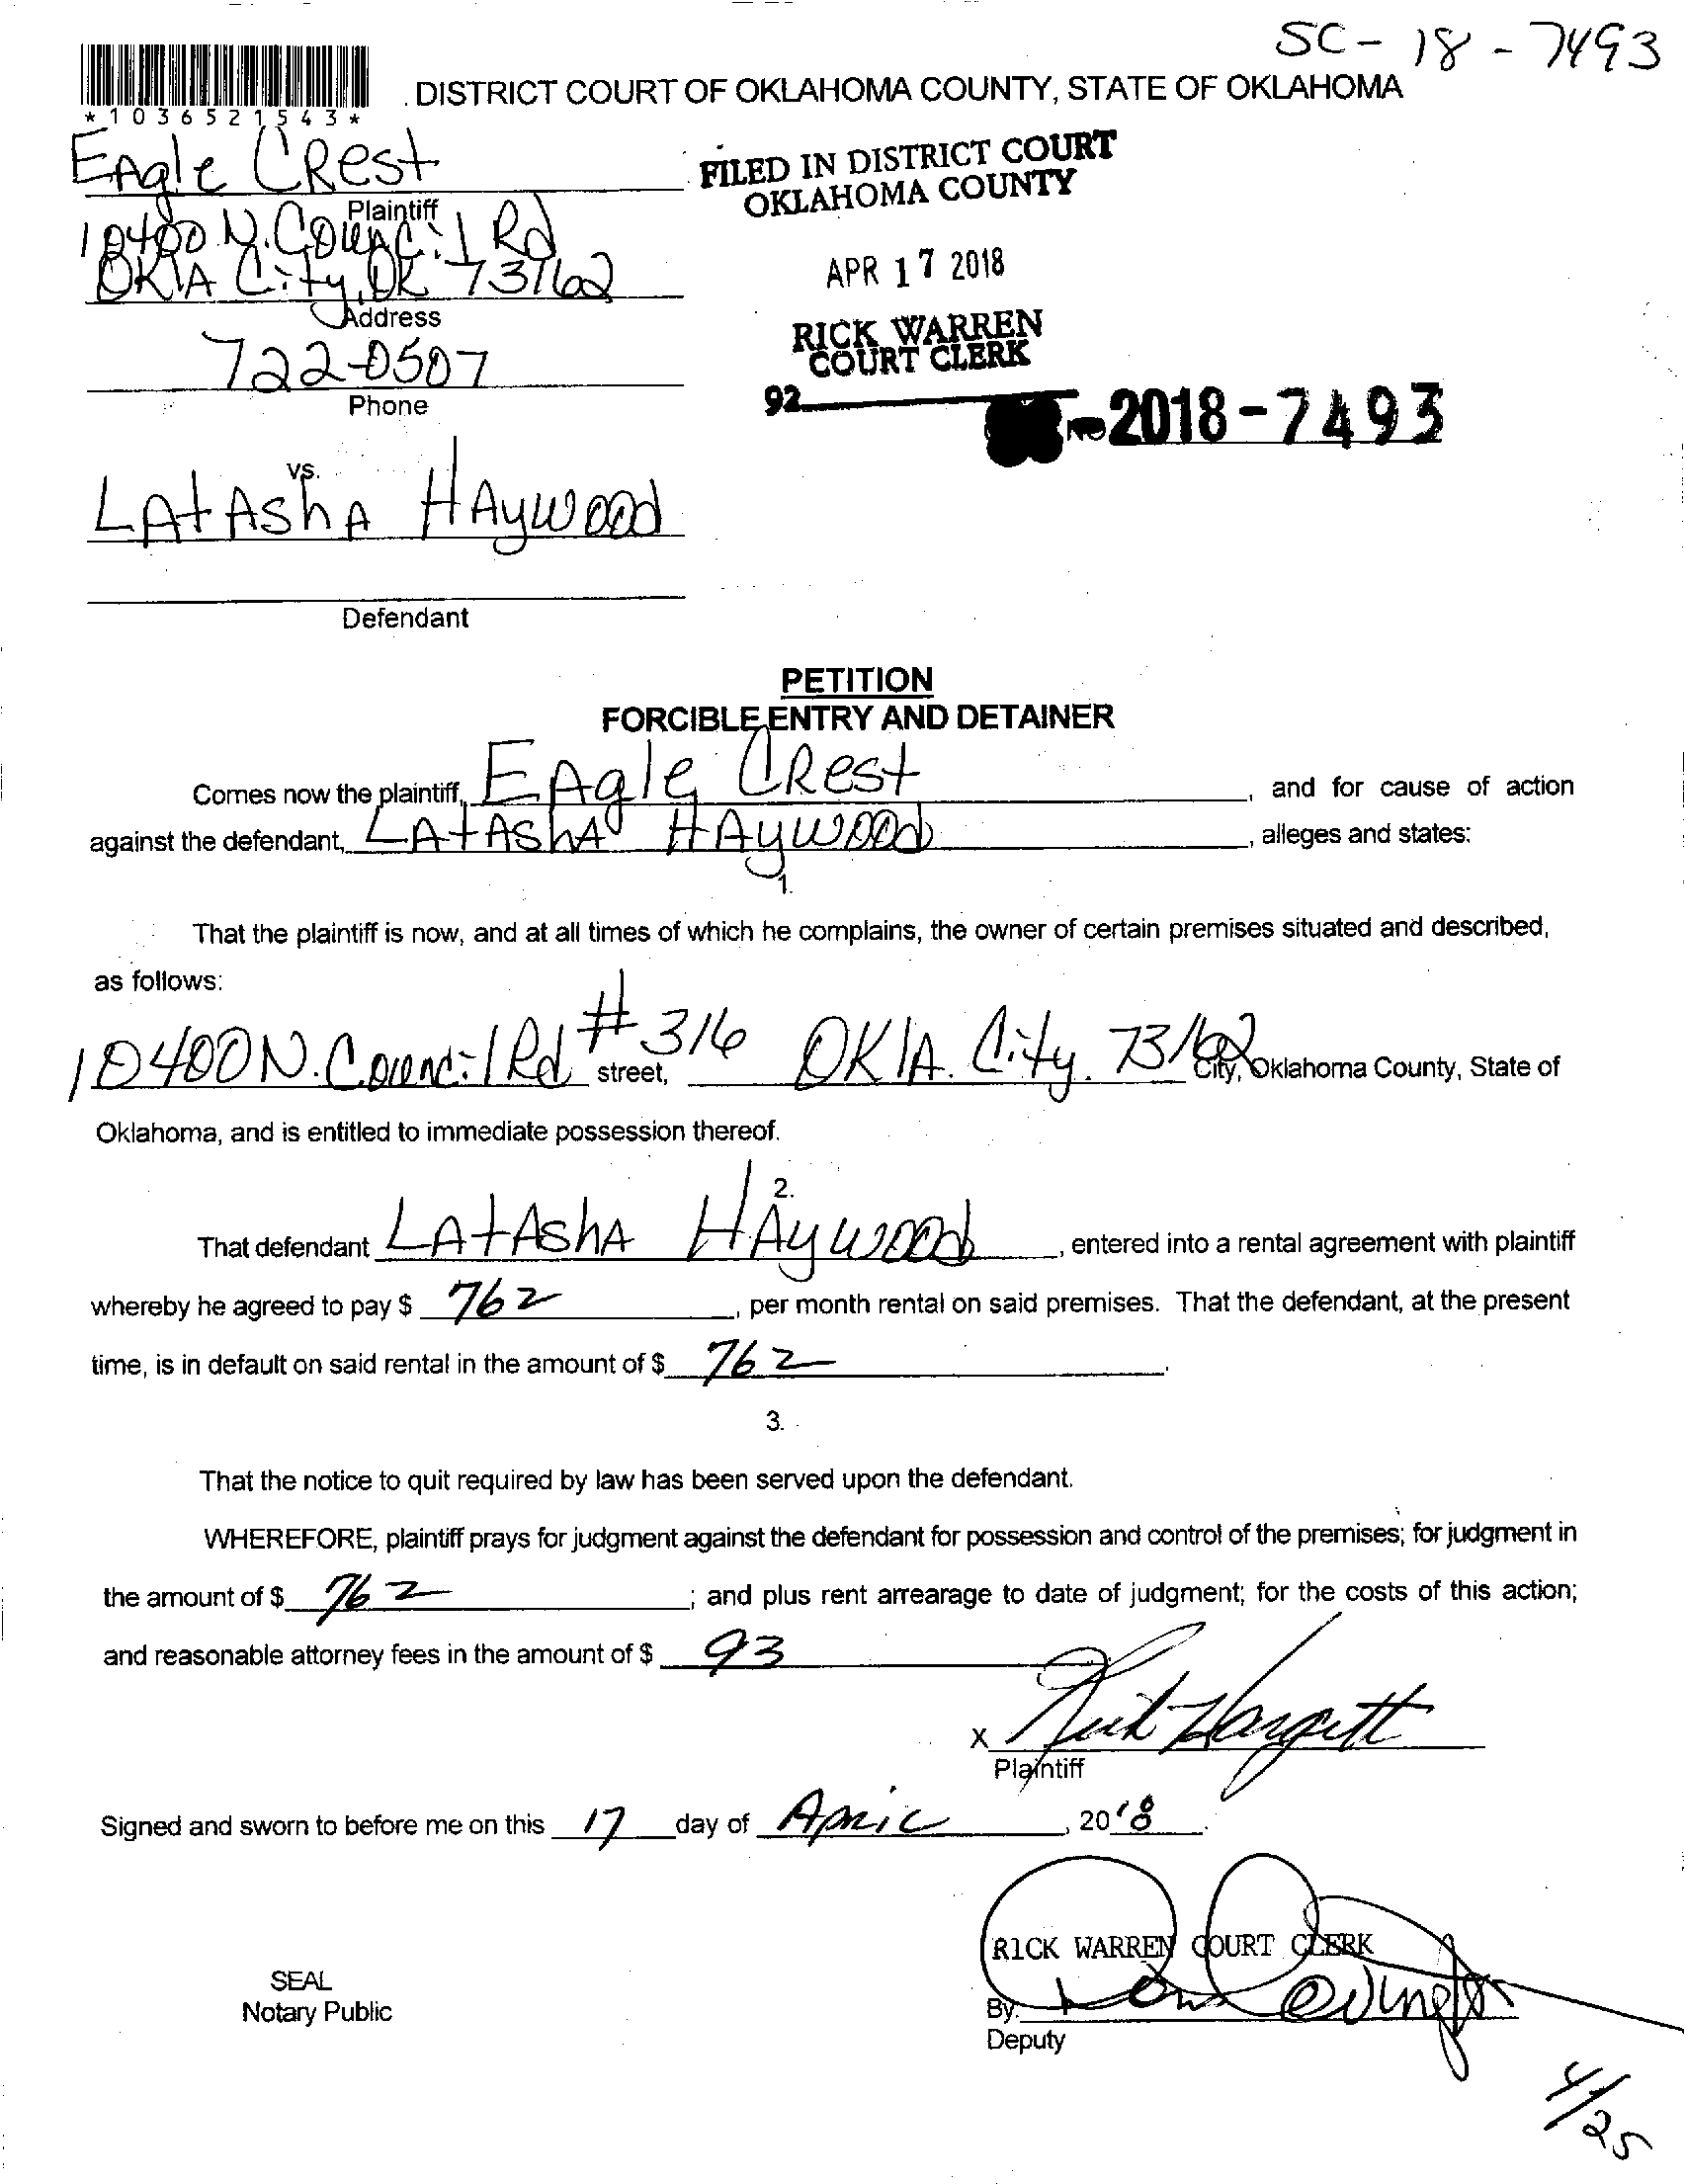 SC - 18 - 7493
DISTRICT COURT OF OKLAHOMA COUNTY, STATE OF OKLAHOMA
*1036521543*
EAgle CRest
Plaintiff
10400 N. Council Rd
OKlA City, OK 73162
Address
722-0507
Phone
FILED IN DISTRICT COURT
OKLAHOMA COUNTY
APR 17 2018
RICK WARREN
COURT CLERK
92
-2018-7493
vs.
LAtAshA HAywood
Defendant
PETITION
FORCIBLE ENTRY AND DETAINER
Comes now the plaintiff, EAgle CRest, and for cause of action
against the defendant, LAtAshA HAywood, alleges and states:
1.
That the plaintiff is now, and at all times of which he complains, the owner of certain premises situated and described,
as follows:
10400 N. Council Rd #316 street, OKlA. City. 73162 City, Oklahoma County, State of
Oklahoma, and is entitled to immediate possession thereof.
2.
That defendant LAtAshA HAywood, entered into a rental agreement with plaintiff
whereby he agreed to pay $ 762, per month rental on said premises. That the defendant, at the present
time, is in default on said rental in the amount of $ 762.
3.
That the notice to quit required by law has been served upon the defendant.
WHEREFORE, plaintiff prays for judgment against the defendant for possession and control of the premises; for judgment in
the amount of $ 762; and plus rent arrearage to date of judgment; for the costs of this action;
and reasonable attorney fees in the amount of $ 93
X
Plaintiff
Signed and sworn to before me on this 17 day of April, 20'18.
RICK WARREN COURT CLERK
SEAL
Notary Public
By:
Deputy
4/25